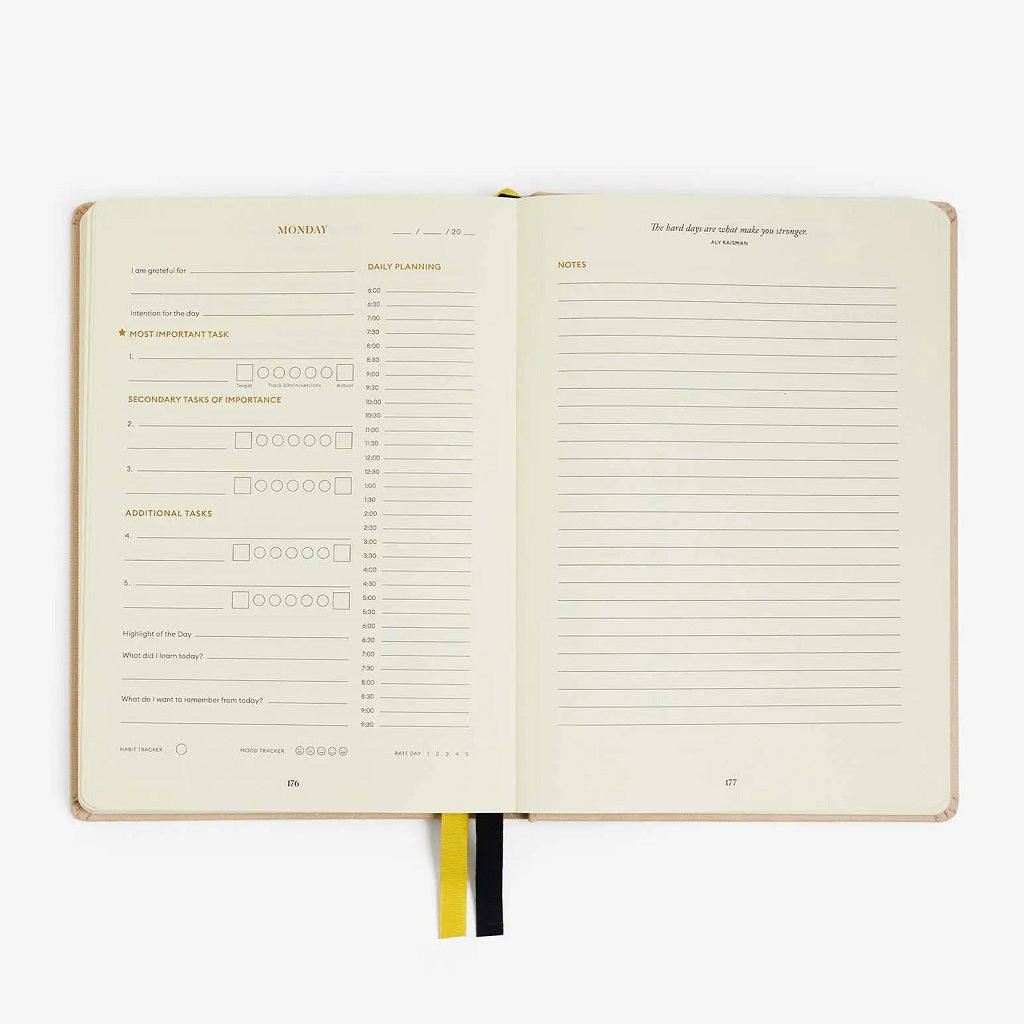 MONDAY
___ / ___ / 20 __
I am grateful for
Intention for the day
★ MOST IMPORTANT TASK
1.
Target Track 30min/sessions Actual
SECONDARY TASKS OF IMPORTANCE
2.
3.
ADDITIONAL TASKS
4.
5.
Highlight of the Day
What did I learn today?
What do I want to remember from today?
HABIT TRACKER
MOOD TRACKER
DAILY PLANNING
6:00
6:30
7:00
7:30
8:00
8:30
9:00
9:30
10:00
10:30
11:00
11:30
12:00
12:30
1:00
1:30
2:00
2:30
3:00
3:30
4:00
4:30
5:00
5:30
6:00
6:30
7:00
7:30
8:00
8:30
9:00
9:30
RATE DAY 1 2 3 4 5
176
The hard days are what make you stronger.
ALY RAISMAN
NOTES
177